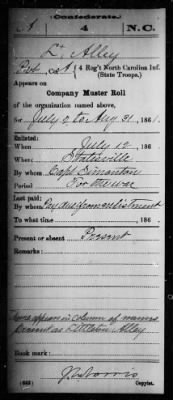 Confederate.
A 4 N.C.
Lt. Alley
Pvt, Co. A, 4 Reg't North Carolina Inf. (State Troops.)
Appears on
Company Muster Roll
of the organization named above,
for July 2 to Aug 31, 1861.
Enlisted:
When July 12, 186 .
Where Statesville
By whom Capt Simonton
Period For the war
Last paid:
By whom Pay due from enlistment
To what time , 186 .
Present or absent Present
Remarks:
Name appears in column of names
present as Littleton Alley
Book mark:
(642) Copyist.